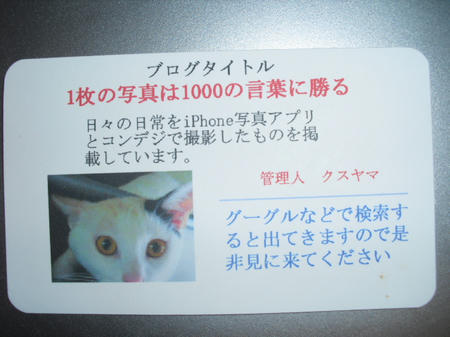 ブログタイトル
1枚の写真は1000の言葉に勝る
日々の日常をiPhone写真アプリ
とコンデジで撮影したものを掲
載しています。
管理人　クスヤマ
グーグルなどで検索す
ると出てきますので是
非見に来てください